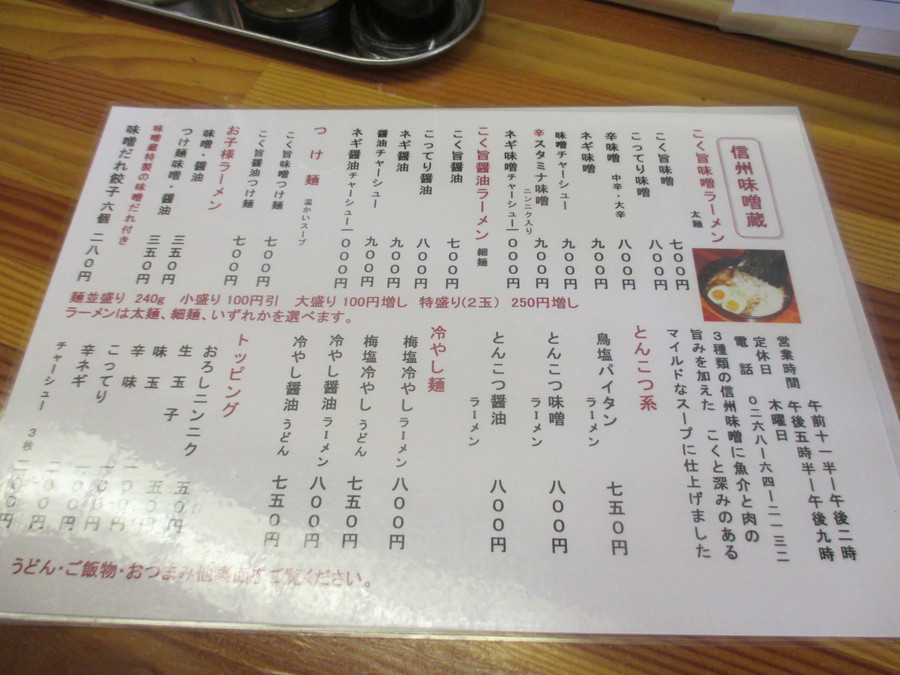 信州味噌蔵
こく旨味噌ラーメン 太麺
こく旨味噌 七〇〇円
こってり味噌 八〇〇円
辛味噌 中辛・大辛 八〇〇円
ネギ味噌 九〇〇円
味噌チャーシュー 九〇〇円
辛スタミナ味噌 ニンニク入り 九〇〇円
ネギ味噌チャーシュー 一〇〇〇円
こく旨醤油ラーメン 細麺
こく旨醤油 七〇〇円
こってり醤油 八〇〇円
ネギ醤油 九〇〇円
醤油チャーシュー 九〇〇円
ネギ醤油チャーシュー 一〇〇〇円
つけ麺 温かいスープ
こく旨味噌つけ麺 七〇〇円
こく旨醤油つけ麺 七〇〇円
お子様ラーメン
味噌・醤油 三五〇円
つけ麺味噌・醤油 三五〇円
味噌蔵特製の味噌だれ付き
味噌だれ餃子 六個 二八〇円
麺並盛り 240g 小盛り100円引 大盛り100円増し 特盛り(2玉) 250円増し
ラーメンは太麺、細麺、いずれかを選べます。
営業時間 午前十一半―午後二時
午後五時半―午後九時
定休日 木曜日
電話 〇二六八―六四―二一三二
3種類の信州味噌に魚介と肉の
旨みを加えた こくと深みのある
マイルドなスープに仕上げました
とんこつ系
鳥塩パイタン ラーメン 七五〇円
とんこつ味噌 ラーメン 八〇〇円
とんこつ醤油 ラーメン 八〇〇円
冷やし麺
梅塩冷やし ラーメン 八〇〇円
梅塩冷やし うどん 七五〇円
冷やし醤油 ラーメン 八〇〇円
冷やし醤油 うどん 七五〇円
トッピング
おろしニンニク 五〇円
生玉子 五〇円
味玉 一〇〇円
辛味 一〇〇円
こってり 一〇〇円
辛ネギ 二〇〇円
チャーシュー 3枚 二〇〇円
うどん・ご飯物・おつまみ他裏面をご覧ください。